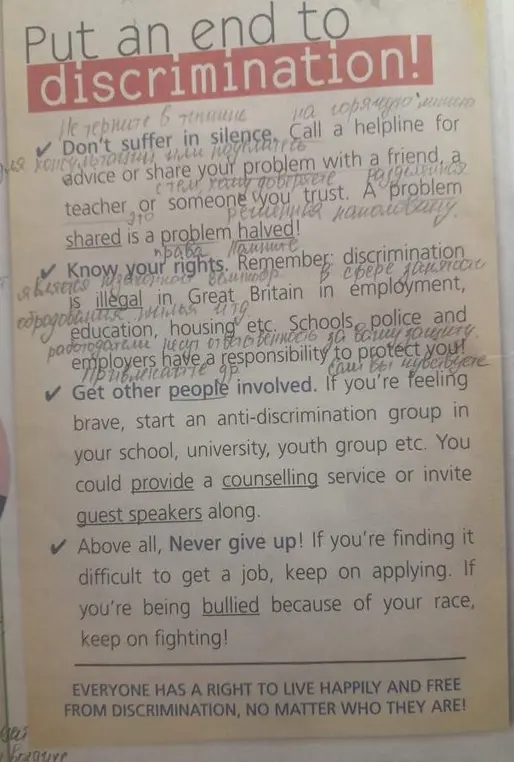 Put an end to
discrimination!
Не терпите в тишине на горячую линию
✔ Don't suffer in silence. Call a helpline for
для консультации или поделитесь
advice or share your problem with a friend, a
с тем, кому доверяете
teacher or someone you trust. A problem
это
shared is a problem halved!
права
✔ Know your rights. Remember: discrimination
является в сфере
is illegal in Great Britain in employment,
образования жилья итд.
education, housing etc. Schools, police and
работодатели несут ответственность за вашу защиту.
employers have a responsibility to protect you!
др. вы чувствуете
✔ Get other people involved. If you're feeling
brave, start an anti-discrimination group in
your school, university, youth group etc. You
could provide a counselling service or invite
guest speakers along.
✔ Above all, Never give up! If you're finding it
difficult to get a job, keep on applying. If
you're being bullied because of your race,
keep on fighting!
EVERYONE HAS A RIGHT TO LIVE HAPPILY AND FREE
FROM DISCRIMINATION, NO MATTER WHO THEY ARE!